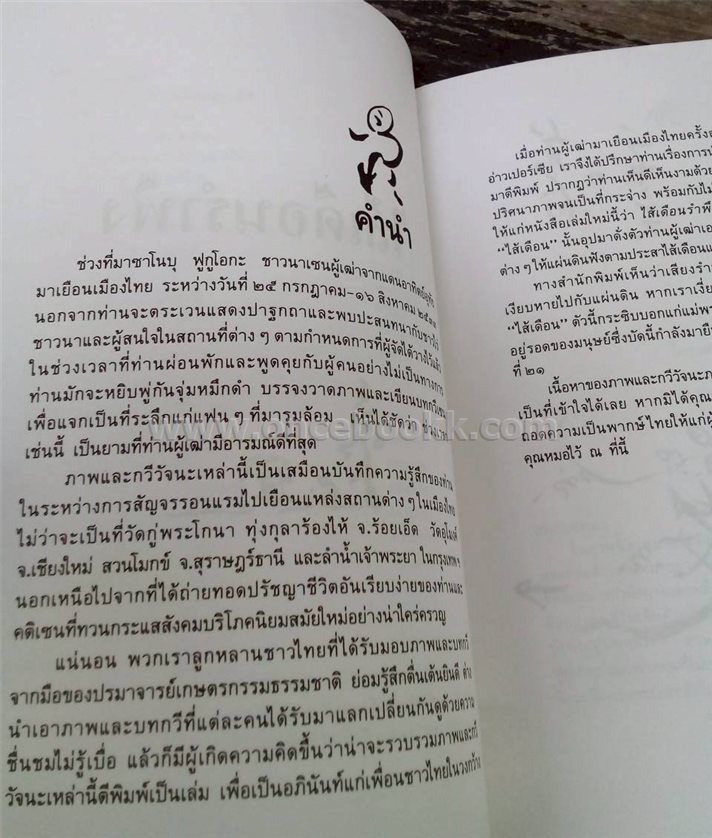 คำนำ
ช่วงที่มาซาโนบุ ฟูกูโอกะ ชาวนาเซนผู้เฒ่าจากแดนอาทิตย์อุทัย
มาเยือนเมืองไทย ระหว่างวันที่ ๒๕ กรกฎาคม-๑๖ สิงหาคม
นอกจากท่านจะตระเวนแสดงปาฐกถาและพบปะสนทนากับชาวไร่
ชาวนาและผู้สนใจในสถานที่ต่าง ๆ ตามกำหนดการที่ผู้จัดได้วางไว้แล้ว
ในช่วงเวลาที่ท่านผ่อนพักและพูดคุยกับผู้คนอย่างไม่เป็นทางการ
ท่านมักจะหยิบพู่กันจุ่มหมึกดำ บรรจงวาดภาพและเขียนบทกวีเซน
เพื่อแจกเป็นที่ระลึกแก่แฟน ๆ ที่มารุมล้อม เห็นได้ชัดว่า ช่วงเวลา
เช่นนี้ เป็นยามที่ท่านผู้เฒ่ามีอารมณ์ดีที่สุด
ภาพและกวีวัจนะเหล่านี้เป็นเสมือนบันทึกความรู้สึกของท่าน
ในระหว่างการสัญจรรอนแรมไปเยือนแหล่งสถานต่าง ๆ ในเมืองไทย
ไม่ว่าจะเป็นที่วัดกู่พระโกนา ทุ่งกุลาร้องไห้ จ.ร้อยเอ็ด วัดอุโมงค์
จ.เชียงใหม่ สวนโมกข์ จ.สุราษฎร์ธานี และลำน้ำเจ้าพระยา ในกรุงเทพ ฯ
นอกเหนือไปจากที่ได้ถ่ายทอดปรัชญาชีวิตอันเรียบง่ายของท่านและ
คติเซนที่ทวนกระแสสังคมบริโภคนิยมสมัยใหม่อย่างน่าใคร่ครวญ
แน่นอน พวกเราลูกหลานชาวไทยที่ได้รับมอบภาพและบทกวี
จากมือของปรมาจารย์เกษตรกรรมธรรมชาติ ย่อมรู้สึกตื่นเต้นยินดี ต่าง
นำเอาภาพและบทกวีที่แต่ละคนได้รับมาแลกเปลี่ยนกันดูด้วยความ
ชื่นชมไม่รู้เบื่อ แล้วก็มีผู้เกิดความคิดขึ้นว่าน่าจะรวบรวมภาพและกวี
วัจนะเหล่านี้ตีพิมพ์เป็นเล่ม เพื่อเป็นอภินันท์แก่เพื่อนชาวไทยในวงกว้าง
เมื่อท่านผู้เฒ่ามาเยือนเมืองไทยครั้ง
อ่าวเปอร์เซีย เราจึงได้ปรึกษาท่านเรื่องการนำ
มาตีพิมพ์ ปรากฏว่าท่านเห็นดีเห็นงามด้วย
ปริศนาภาพจนเป็นที่กระจ่าง พร้อมกับ
ให้แก่หนังสือเล่มใหม่นี้ว่า ไส้เดือนรำพึง
"ไส้เดือน" นั้นอุปมาดั่งตัวท่านผู้เฒ่าเอง
ต่าง ๆ ให้แผ่นดินฟังตามประสาไส้เดือน
ทางสำนักพิมพ์เห็นว่าเสียง
เงียบหายไปกับแผ่นดิน หากเรา
"ไส้เดือน" ตัวนี้กระซิบบอกแก่แม่
อยู่รอดของมนุษย์ซึ่งบัดนี้กำลัง
ที่ ๒๑
เนื้อหาของภาพและกวีวัจนะ
เป็นที่เข้าใจได้เลย หากมิได้คุณ
ถอดความเป็นพากษ์ไทยให้แก่
คุณหมอไว้ ณ ที่นี้